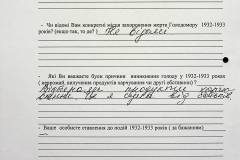 - Чи відомі Вам конкретні місця поховання жертв Голодомору 1932-1933
років? (якщо так, то де? ) Не відомі
Які Ви вважаєте були причини виникнення голоду у 1932-1933 роках
( неврожай, вилучення продуктів харчування чи другі обставини)
продукти
це я від
- Ваше особисте ставлення до подій 1932-1933 років ( за бажанням)